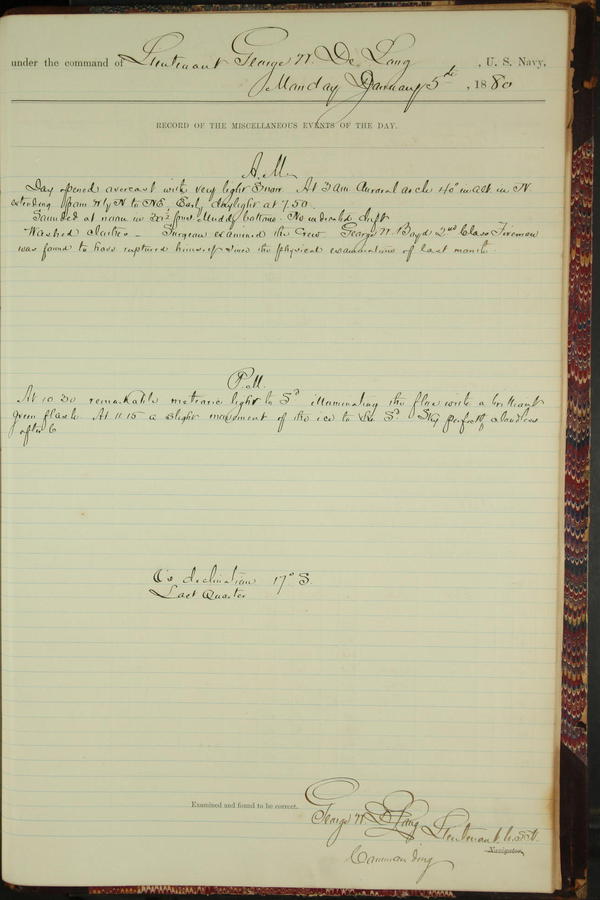 under the command of Lieutenant George W. De Long, U. S. Navy,
Monday January 5th, 1880
RECORD OF THE MISCELLANEOUS EVENTS OF THE DAY.
A.M.
Day opened overcast with very light snow. At 3 am Auroral arch 40° in alt in N
extending from N'ly N to NE. Early daylight at 7.50.
Sounded at noon in 30½ fms. Muddy bottom. No indicated drift
Washed clothes – Surgeon examined the Crew. George W. Boyd 2nd Class Fireman
was found to have ruptured himself since the physical examination of last month.
P.M.
At 10 30 remarkable meteoric light to Sd illuminating the floe with a brilliant
green flash. At 11.15 a slight movement of the ice to Sd. Sky perfectly cloudless
after 6
☾'s declination 17° S.
Last Quarter
Examined and found to be correct.
George W. De Long Lieutenant U.S.N.
Navigator.
Commanding